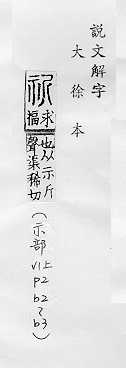 説文解字
大徐本
祈
求
福
也从示斤
聲渠稀切
(示部V1上P2b2~b3)